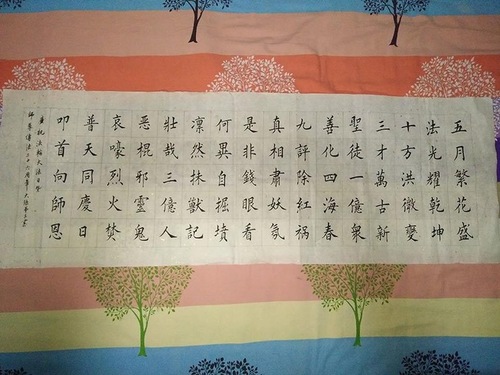 五月繁花盛
法光耀乾坤
十方洪微變
三才萬古新
聖徒一億衆
善化四海春
九評除紅禍
真相肅妖氛
是非錢眼看
何異自掘墳
凜然抹獸記
壯哉三億人
惡棍邪靈鬼
哀嚎烈火焚
普天同慶日
叩首向師恩
祝法輪大法日暨
師尊傳法二十六周年